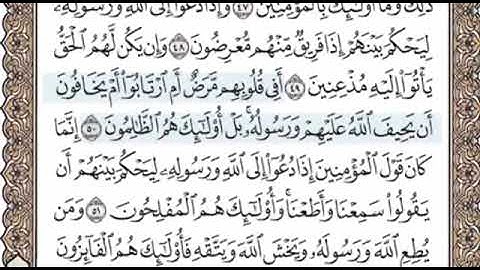 ذَٰلِكَ وَمَا أُوْلَـٰٓئِكَ بِٱلْمُؤْمِنِينَ ٤٧ وَإِذَا دُعُوٓاْ إِلَى ٱللَّهِ وَرَسُولِهِۦ
لِيَحْكُمَ بَيْنَهُمْ إِذَا فَرِيقٌ مِّنْهُم مُّعْرِضُونَ ٤٨ وَإِن يَكُن لَّهُمُ ٱلْحَقُّ
يَأْتُوٓاْ إِلَيْهِ مُذْعِنِينَ ٤٩ أَفِى قُلُوبِهِم مَّرَضٌ أَمِ ٱرْتَابُوٓاْ أَمْ يَخَافُونَ
أَن يَحِيفَ ٱللَّهُ عَلَيْهِمْ وَرَسُولُهُۥ ۚ بَلْ أُوْلَـٰٓئِكَ هُمُ ٱلظَّـٰلِمُونَ ٥٠ إِنَّمَا
كَانَ قَوْلَ ٱلْمُؤْمِنِينَ إِذَا دُعُوٓاْ إِلَى ٱللَّهِ وَرَسُولِهِۦ لِيَحْكُمَ بَيْنَهُمْ أَن
يَقُولُواْ سَمِعْنَا وَأَطَعْنَا ۚ وَأُوْلَـٰٓئِكَ هُمُ ٱلْمُفْلِحُونَ ٥١ وَمَن
يُطِعِ ٱللَّهَ وَرَسُولَهُۥ وَيَخْشَ ٱللَّهَ وَيَتَّقْهِ فَأُوْلَـٰٓئِكَ هُمُ ٱلْفَآئِزُونَ